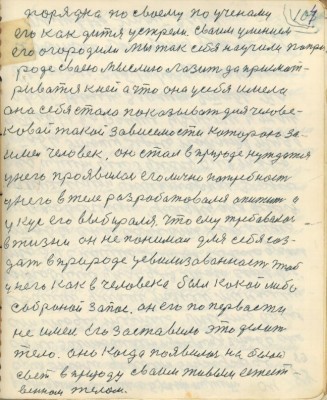 порядка по своему по ученаму
его как дитя устрели. своим умением
его огородили мы так себя научили по при
роде своею мыслию лазит да присмат-
риватся к ней а что она у себя имела
она себя стала показыват для челове-
ка вой такой зависимости которою за-
имел человек. он стал в природе нуждатся
у него проявилос его лично потребност
у него в теле разработовался апитит а
у кус его выбирался. что ему требовалос
в жизни он не понимал для себя соз-
дат в природе цевилизованност. чтоб
у него как в человека был какой либо
собраной запас. он его по первости
не имел его заставило это делат
тело. оно когда появилос на белый
свет в природу своим живым естест-
венном телом.